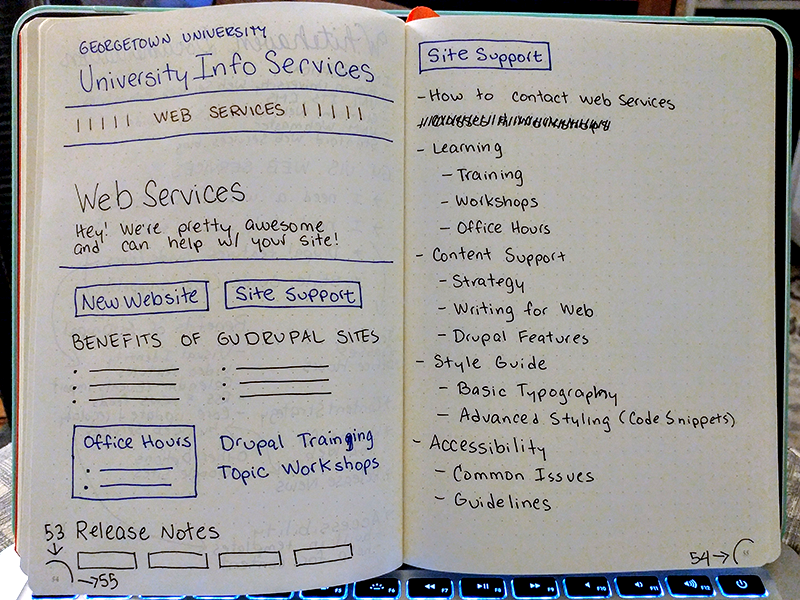 GEORGETOWN UNIVERSITY
University Info Services
WEB SERVICES
Web Services
Hey! We're pretty awesome
and can help w/ your site!
New Website
Site Support
BENEFITS OF GU DRUPAL SITES
Office Hours
Drupal Training
Topic Workshops
53 Release Notes
→55
Site Support
- How to contact Web Services
- Learning
- Training
- Workshops
- Office Hours
- Content Support
- Strategy
- Writing for Web
- Drupal Features
- Style Guide
- Basic Typography
- Advanced Styling (Code Snippets)
- Accessibility
- Common Issues
- Guidelines
54→
F6
F7
F8
F9
F10
F11
F12